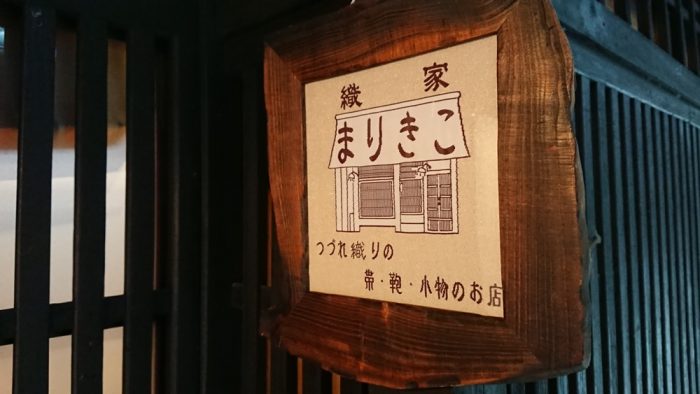 織家
まりきこ
つづれ織りの
帯・鞄・小物のお店